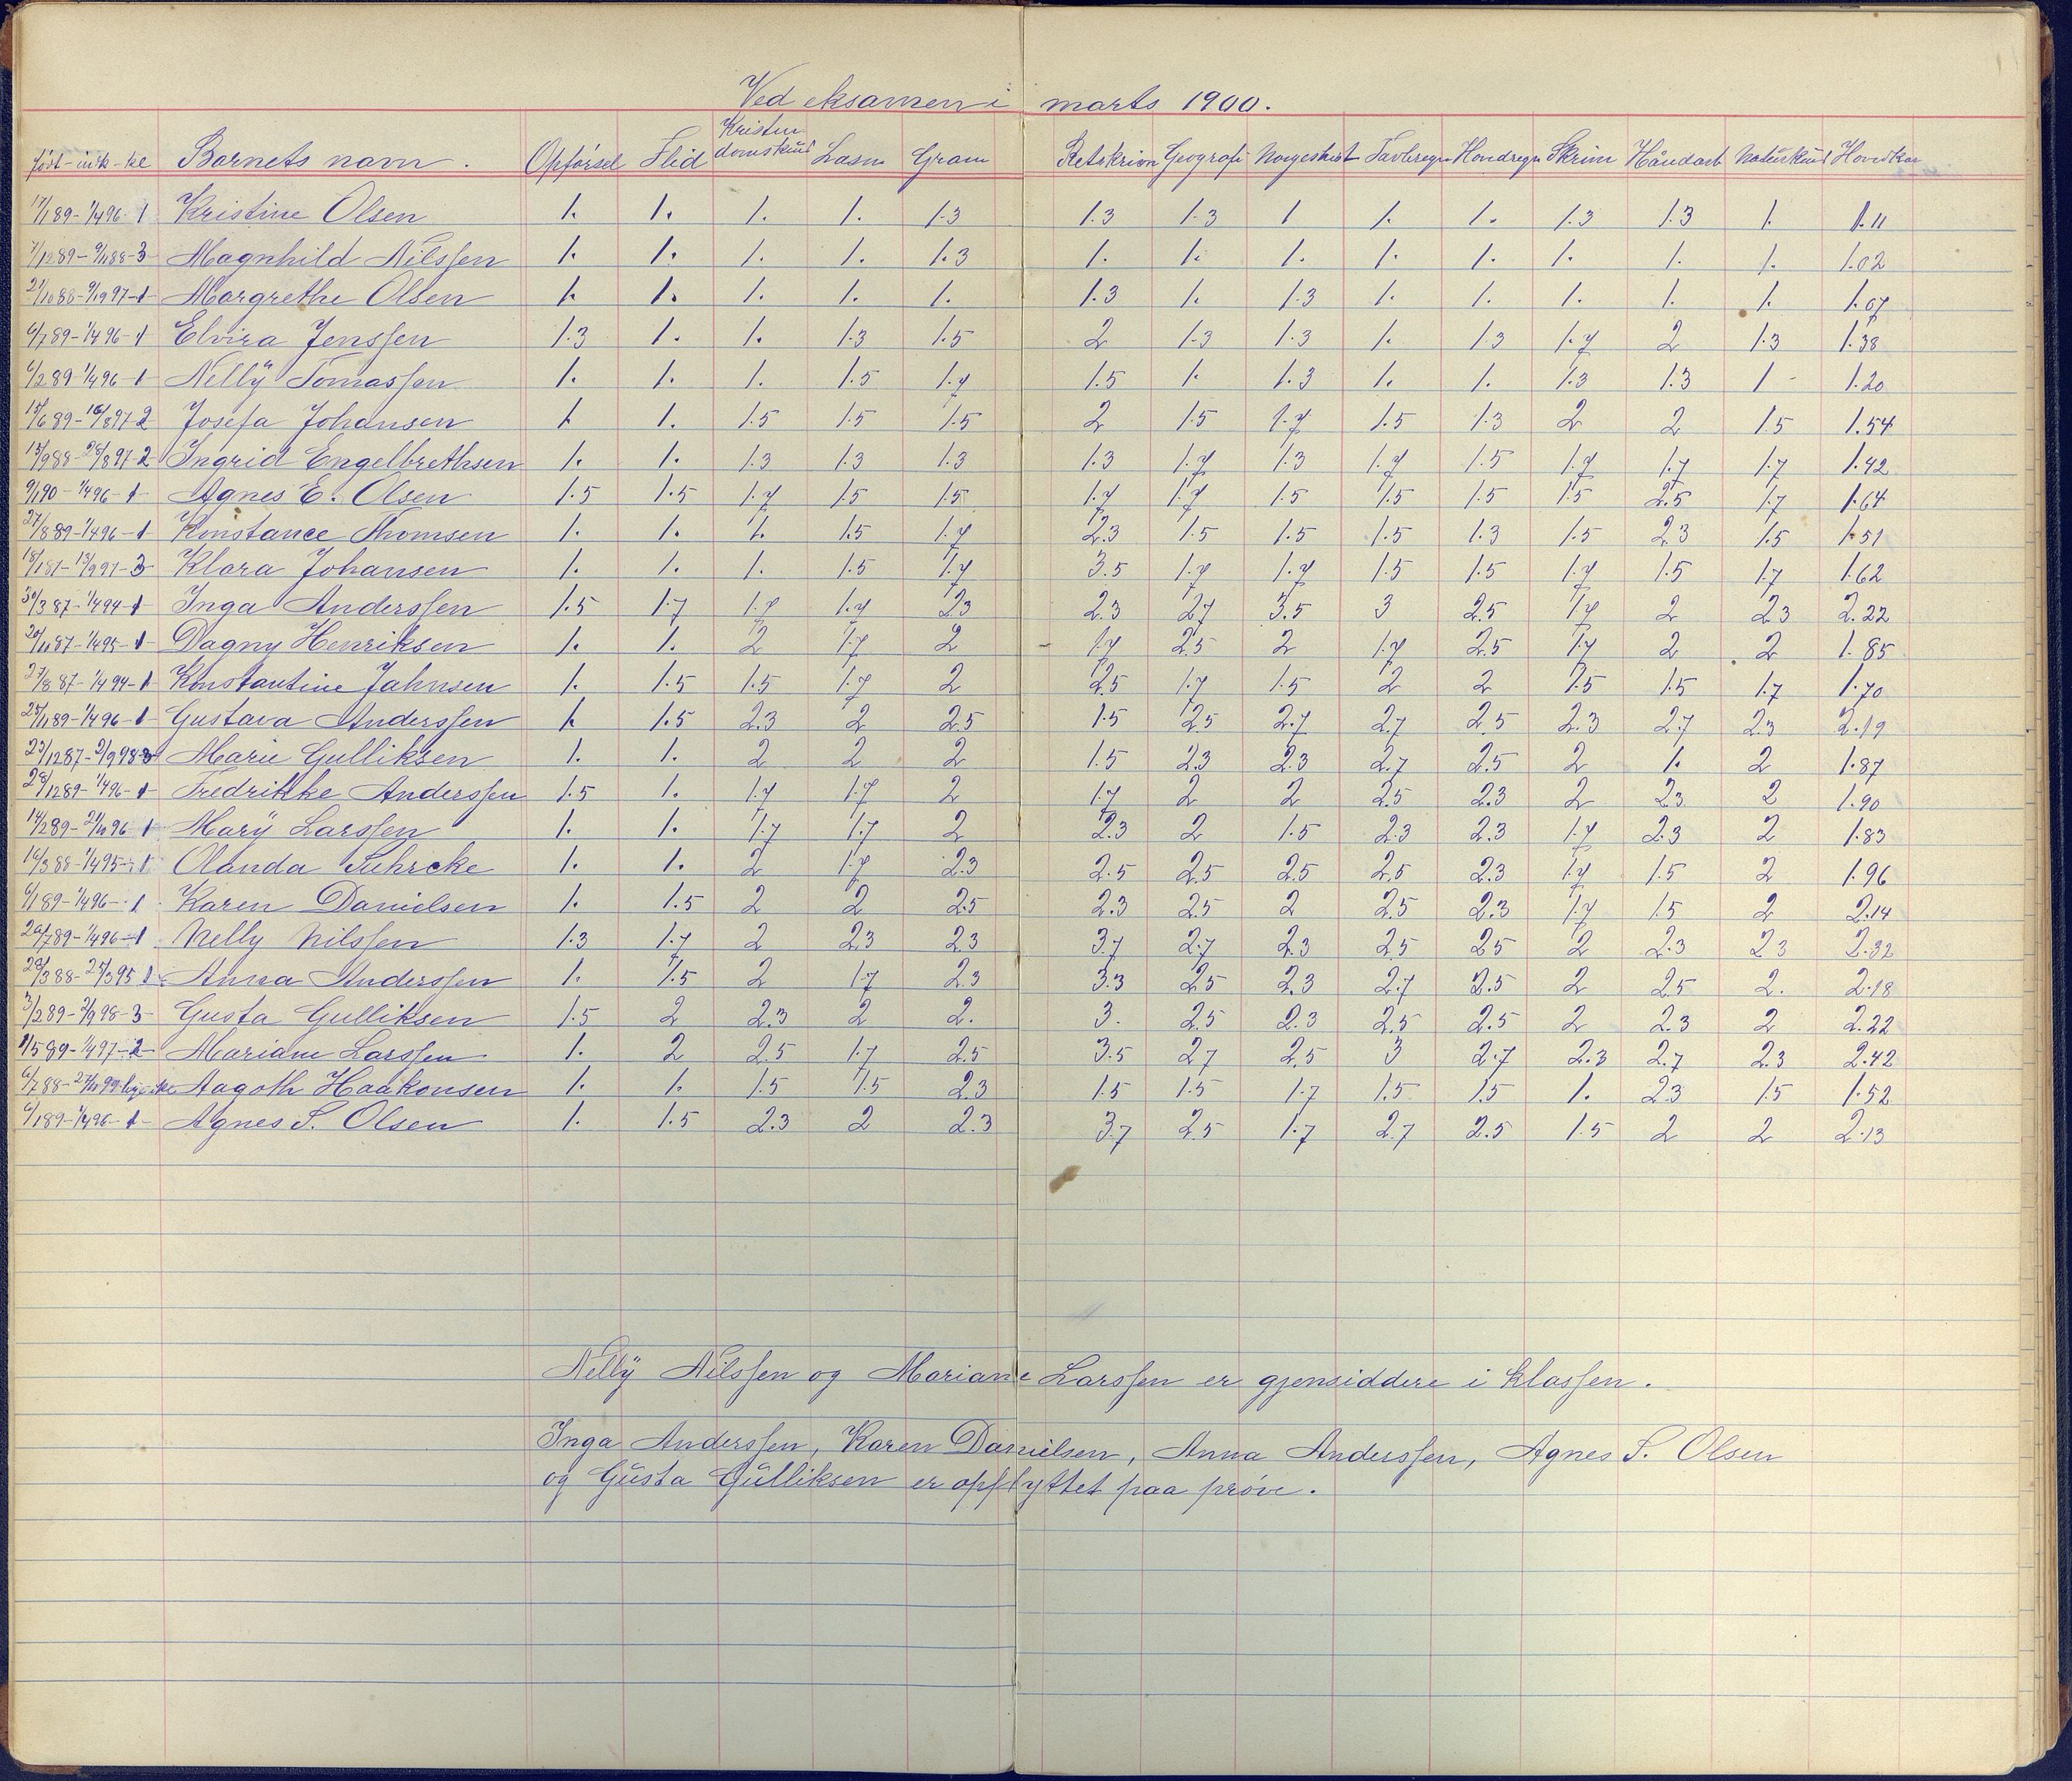 Ved eksamen i marts 1900.
født - indk - ke Barnets navn. Opførsel Flid Kristendomskund Læsn Gram Retskrivn Geografi Norgeshist Tavleregn Hovdregn Skrivn Håndarb Naturkund Hovedkar
17/1 89 - 1/4 96 - 1 Kristine Olsen 1. 1. 1. 1. 1.3 1.3 1.3 1 1. 1. 1.3 1.3 1. 1.11
7/12 89 - 9/1 88 - 3 Magnhild Nilssen 1. 1. 1. 1. 1.3 1. 1. 1. 1. 1. 1. 1. 1. 1.02
21/10 88 - 9/9 97 - 1 Margrethe Olsen 1. 1. 1. 1. 1. 1.3 1. 1.3 1. 1. 1. 1. 1. 1.07
6/7 89 - 1/4 96 - 1 Elvira Jenssen 1.3 1. 1. 1.3 1.5 2 1.3 1.3 1. 1.3 1.7 2 1.3 1.38
6/2 89 - 1/4 96 - 1 Nelly Tomassen 1. 1. 1. 1.5 1.7 1.5 1. 1.3 1. 1. 1.3 1.3 1 - 1.20
15/6 89 - 16/8 97 - 2 Josefa Johansen 1 1. 1.5 1.5 1.5 2 1.5 1.7 1.5 1.3 2 2 1.5 1.54
13/9 88 - 26/8 97 - 2 Ingrid Engelbrethsen 1. 1. 1.3 1.3 1.3 1.3 1.7 1.3 1.7 1.5 1.7 1.7 1.7 1.42
9/1 90 - 1/4 96 - 1 Agnes E. Olsen 1.5 1.5 1.7 1.5 1.5 1.7 1.7 1.5 1.5 1.5 1.5 2.5 1.7 1.64
27/8 89 - 1/4 96 - 1 Konstance Thomsen 1. 1. 1. 1.5 1.7 2.3 1.5 1.5 1.5 1.3 1.5 2.3 1.5 1.51
18/1 87 - 13/9 97 - 3 Klara Johansen 1. 1. 1. 1.5 1.7 3.5 1.7 1.7 1.5 1.5 1.7 1.5 1.7 1.62
30/3 87 - 1/4 94 - 1 Inga Anderssen 1.5 1.7 1.7 1.7 2.3 2.3 2.7 3.5 3 2.5 1.7 2 2.3 2.22
20/11 87 - 1/4 95 - 1 Dagny Henriksen 1. 1. 2 1.7 2 1.7 2.5 2 1.7 2.5 1.7 2 2 1.85
27/8 87 - 1/4 94 - 1 Konstantine Jahnsen 1. 1.5 1.5 1.7 2 2.5 1.7 1.5 2 2 1.5 1.5 1.7 1.70
25/11 89 - 1/4 96 - 1 Gustava Anderssen 1. 1.5 2.3 2 2.5 1.5 2.5 2.7 2.7 2.5 2.3 2.7 2.3 2.19
23/12 87 - 2/9 98 - 3 Marie Gulliksen 1. 1. 2 2 2 1.5 2.3 2.3 2.7 2.5 2 1. 2 1.87
28/12 89 - 1/4 96 - 1 Fredrikke Anderssen 1.5 1. 1.7 1.7 2 1.7 2 2 2.5 2.3 2 2.3 2 1.90
14/2 89 - 21/10 96 - 1 Mary Larssen 1. 1. 1.7 1.7 2 2.3 2 1.5 2.3 2.3 1.7 2.3 2 1.83
16/3 88 - 1/4 95 - 1 Olanda Suhrcke 1. 1. 2 1.7 2.3 2.5 2.5 2.5 2.5 2.3 1.7 1.5 2 1.96
6/1 89 - 1/4 96 - 1 Karen Danielsen 1. 1.5 2 2 2.5 2.3 2.5 2 2.5 2.3 1.7 1.5 2 2.14
26/7 89 - 1/4 96 - 1 Nelly Nilssen 1.3 1.7 2 2.3 2.3 3.7 2.7 2.3 2.5 2.5 2 2.3 2.3 2.32
28/3 88 - 25/3 95 1 Anna Anderssen 1. 1.5 2 1.7 2.3 3.3 2.5 2.3 2.7 2.5 2 2.5 2. 2.18
3/2 89 - 2/9 98 - 3 Gusta Gulliksen 1.5 2 2.3 2 2. 3. 2.5 2.3 2.5 2.5 2 2.3 2 2.22
1/5 89 - 1/4 97 - 2 Mariane Larssen 1. 2 2.5 1.7 2.5 3.5 2.7 2.5 3 2.7 2.3 2.7 2.3 2.42
6/7 88 - 27/10 99 Aagoth Haakonsen 1. 1. 1.5 1.5 2.3 1.5 1.5 1.7 1.5 1.5 1. 2.3 1.5 1.52
6/1 89 - 1/4 96 - 1 Agnes S. Olsen 1. 1.5 2.3 2 2.3 3.7 2.5 1.7 2.7 2.5 1.5 2 2 2.13
Nelly Nilssen og Mariane Larssen er gjensiddere i klassen.
Inga Anderssen, Karen Danielsen, Anna Anderssen, Agnes S. Olsen
og Gusta Gulliksen er opflyttet paa prøve.